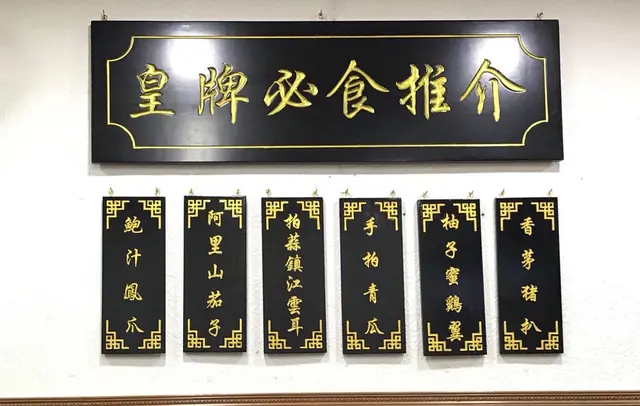 皇牌必食推介
鮑汁鳳爪
阿里山茄子
拍蒜鎮江雲耳
手拍青瓜
柚子蜜鷄翼
香茅豬扒